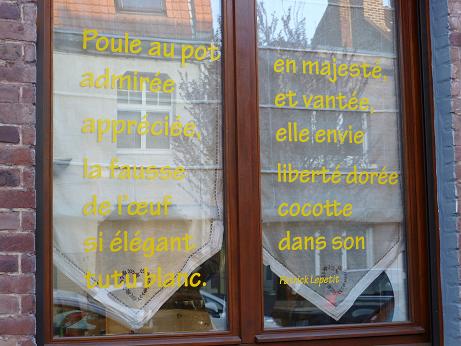 Poule au pot en majesté,
admirée et vantée,
appréciée, elle envie
la fausse liberté dorée
de l'œuf cocotte
si élégant dans son
tutu blanc. Patrick Lepetit